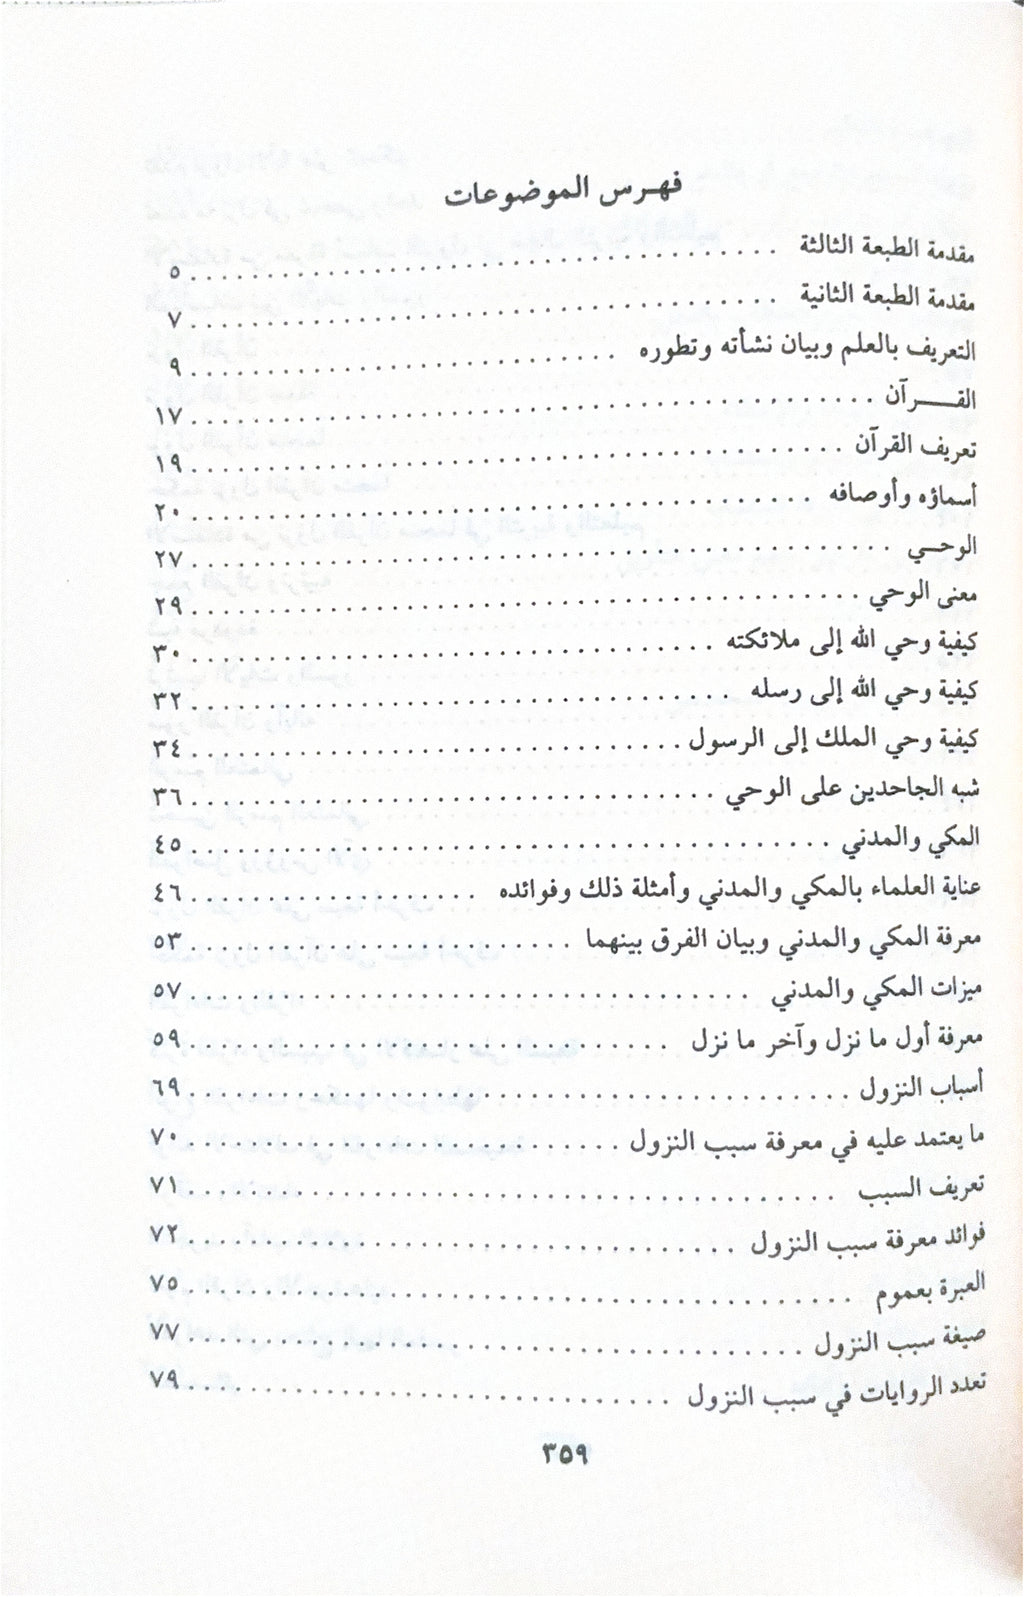 فهرس الموضوعات
مقدمة الطبعة الثالثة ٥
مقدمة الطبعة الثانية ٧
التعريف بالعلم وبيان نشأته وتطوره ٩
القـــرآن ١٧
تعريف القرآن ١٩
أسماؤه وأوصافه ٢٠
الوحـي ٢٧
معنى الوحي ٢٩
كيفية وحي الله إلى ملائكته ٣٠
كيفية وحي الله إلى رسله ٣٢
كيفية وحي الملك إلى الرسول ٣٤
شبه الجاحدين على الوحي ٣٦
المكي والمدني ٤٥
عناية العلماء بالمكي والمدني وأمثلة ذلك وفوائده ٤٦
معرفة المكي والمدني وبيان الفرق بينهما ٥٣
ميزات المكي والمدني ٥٧
معرفة أول ما نزل وآخر ما نزل ٥٩
أسباب النزول ٦٩
ما يعتمد عليه في معرفة سبب النزول ٧٠
تعريف السبب ٧١
فوائد معرفة سبب النزول ٧٢
العبرة بعموم ٧٥
صيغة سبب النزول ٧٧
تعدد الروايات في سبب النزول ٧٩
٣٥٩